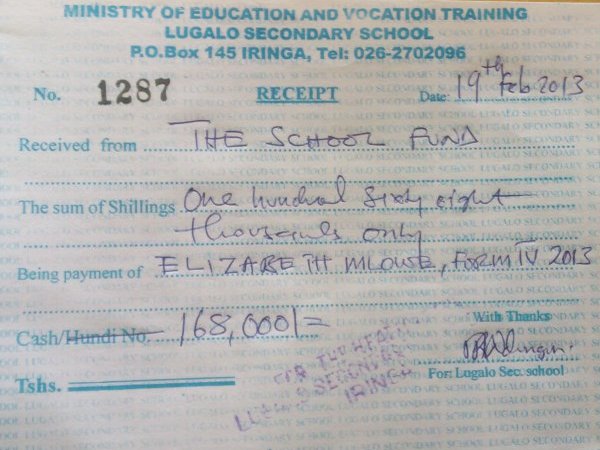 MINISTRY OF EDUCATION AND VOCATION TRAINING
LUGALO SECONDARY SCHOOL
P.O.Box 145 IRINGA, Tel: 026-2702096
No. 1287 RECEIPT Date: 19th Feb 2013
Received from THE SCHOOL FUND
The sum of Shillings One hundred sixty eight
thousands only
Being payment of ELIZABETH MLOWE, FORM IV 2013
Cash/Hundi No. 168,000/=
With Thanks
Tshs.
For: Lugalo Sec. school
FOR THE HEAD
LUGALO SECONDARY
IRINGA